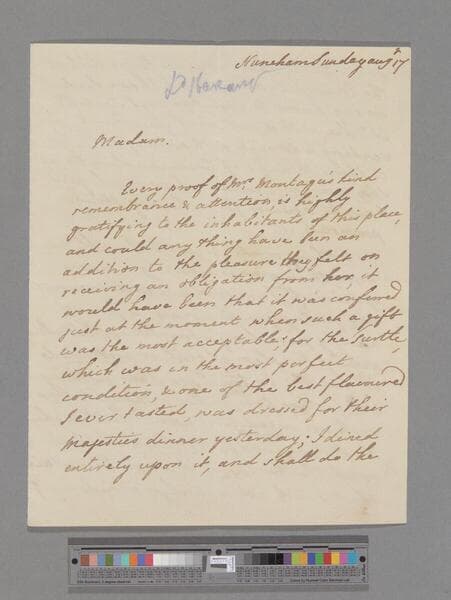 Nuneham Sunday augst 17
Ld Harcourt
Madam.
Every proof of Mrs Montagu's kind
remembrance & attention, is highly
gratifying to the inhabitants of this place,
and could any thing have been an
addition to the pleasure they felt on
receiving an obligation from her, it
would have been that it was confered
just at the moment when such a gift
was the most acceptable; for the Turtle,
which was in the most perfect
condition, & one of the best flavoured
I ever tasted, was dressed for their
Majesties dinner yesterday; I dined
entirely upon it, and shall do the